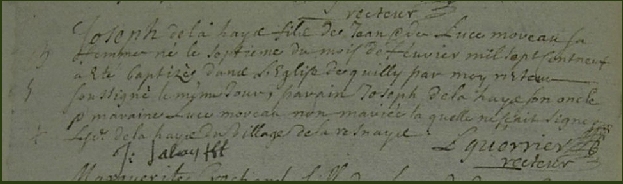 recteur
Joseph de la haye fils de Jean & de Luce moreau sa
femme né le septieme du mois de feuvier mil sept cent neuf
a été baptizé dans l'Eglise de quilly par moy recteur
soussigné le mesme jour parain Joseph de la haye son oncle
& maraine Luce moreau non mariée la quelle ne scait signer
de la haye du village de la
recteur
Marguerite fille